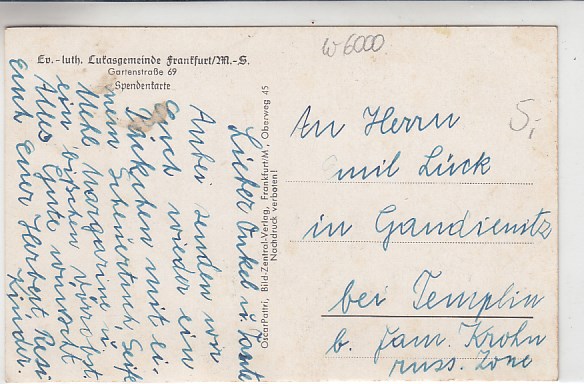 W 6000
Ev.-luth. Lukasgemeinde Frankfurt/M.-S.
Gartenstraße 69
Spendenkarte
Lieber Onkel u. Tante
Anbei senden wir
Euch wieder ein
Päckchen mit ei-
nem Scheuertuch, Seife
Mehl Margarine u.
ein bißchen
Alles Gute wünscht
euch Euer Herbert,
Kinder.
Oscar Pattri, Bild-Zentral-Verlag, Frankfurt/M., Oberweg 45
Nachdruck verboten!
5,-
An Herrn
Emil Lück
in Gandenitz
bei Templin
b. Fam. Krohn
russ. Zone